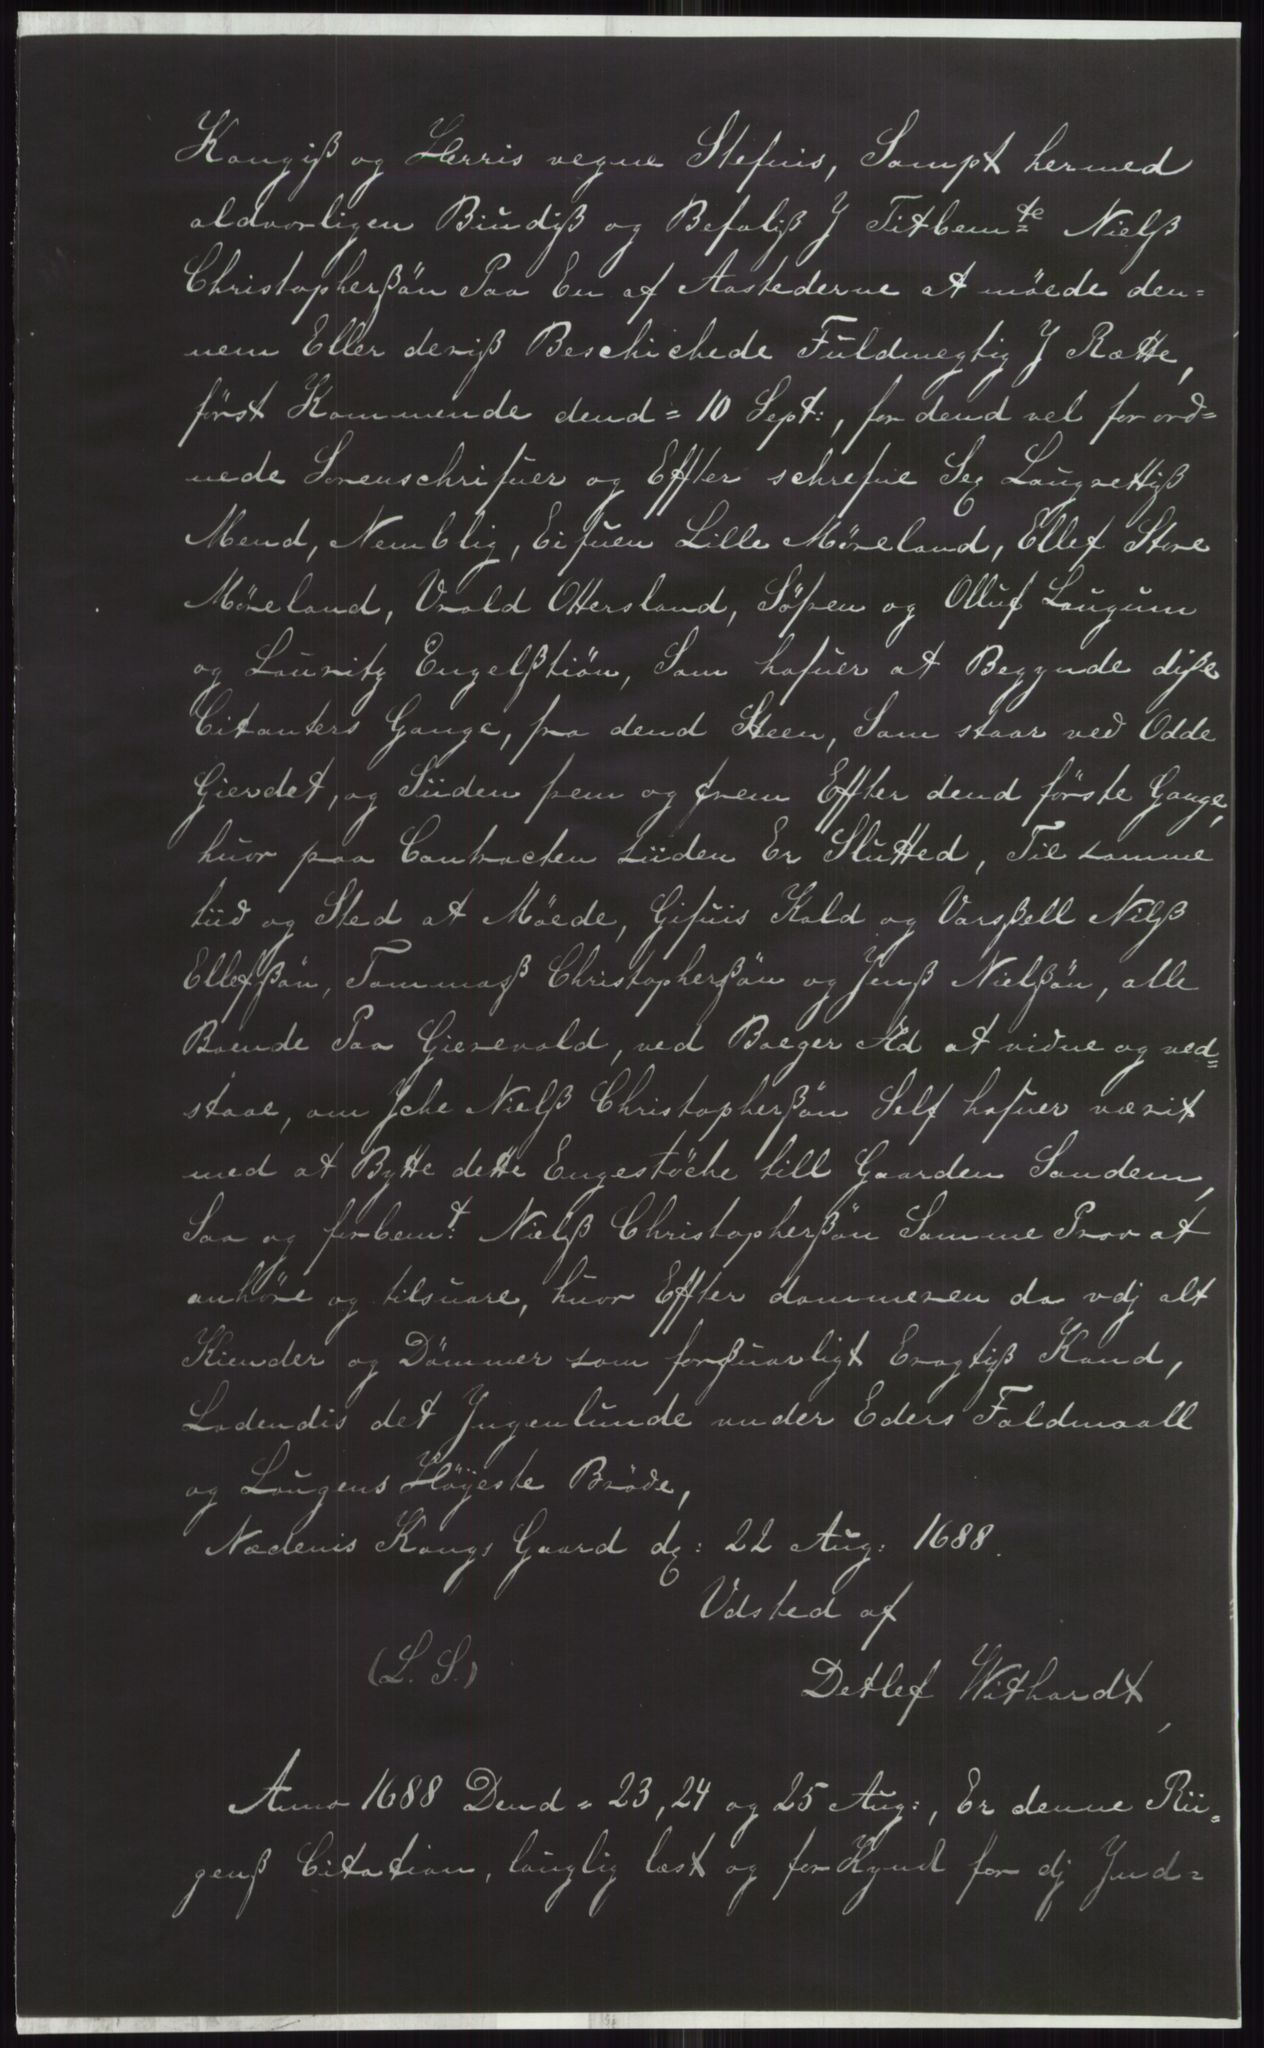 Kongiß og Herris vegne Stefnis, Sampt hermed
aldvorligen Biudiß og Befaliß J Titbem<sup>te</sup> Nielß
Christopherßön Paa En af Aastederne at möede den=
nem Eller deriß Beschichede Fuldmegtig J Rætte,
först Kommende dend = 10 Sept:, for dend vel for ord=
nede Sorenschrifuer og Effter schrefne Sex Laugrettiß
Mend, Nemblig, Eifuen Lille Möreland, Ellef Store
Möreland, Vrald Ottersland, Söfren og Olluf Laugum
og Lauritz Engelßtiön, Som hafuer at Begynde diße
Citanters Gange, fra dend Steen, Som staar ved Odde
Gierdet, og Siiden frem og frem Effter dend förste Gange,
huor paa Contracten siiden Er Slutted, Til samme
tiid og Sted at Möede, Gifuis Kald og Varsßell Nilß
Ellefßön, Tommaß Christopherßön og Jenß Nielßön, alle
Boende Paa Gierevald, ved Boeger Æd at vidne og ved=
staae, om Jche Nielß Christopherßön Self hafuer værit
med at Bytte dette Engestöche till Gaarden Sandem,
Saa og forbem<sup>t</sup>. Nielß Christopherßön Samme Prov at
anhöre og tilsuare, huor Effter dommeren da vdj alt
Kiender og Dömmer som forßuarligt Eragtiß Kand,
Ladendis det Jngenlunde under Eders Faldmaall
og Laugens Höyeste Bröde,
Nædenis Kongs Gaard dg: 22 Aug: 1688.
Udsted af
(L. S.)
Detlef Withardt,
Anno 1688 Dend = 23, 24 og 25 Aug:, Er denne Rii=
genß Citation, lauglig læst og for Kynt för dj Jnd=